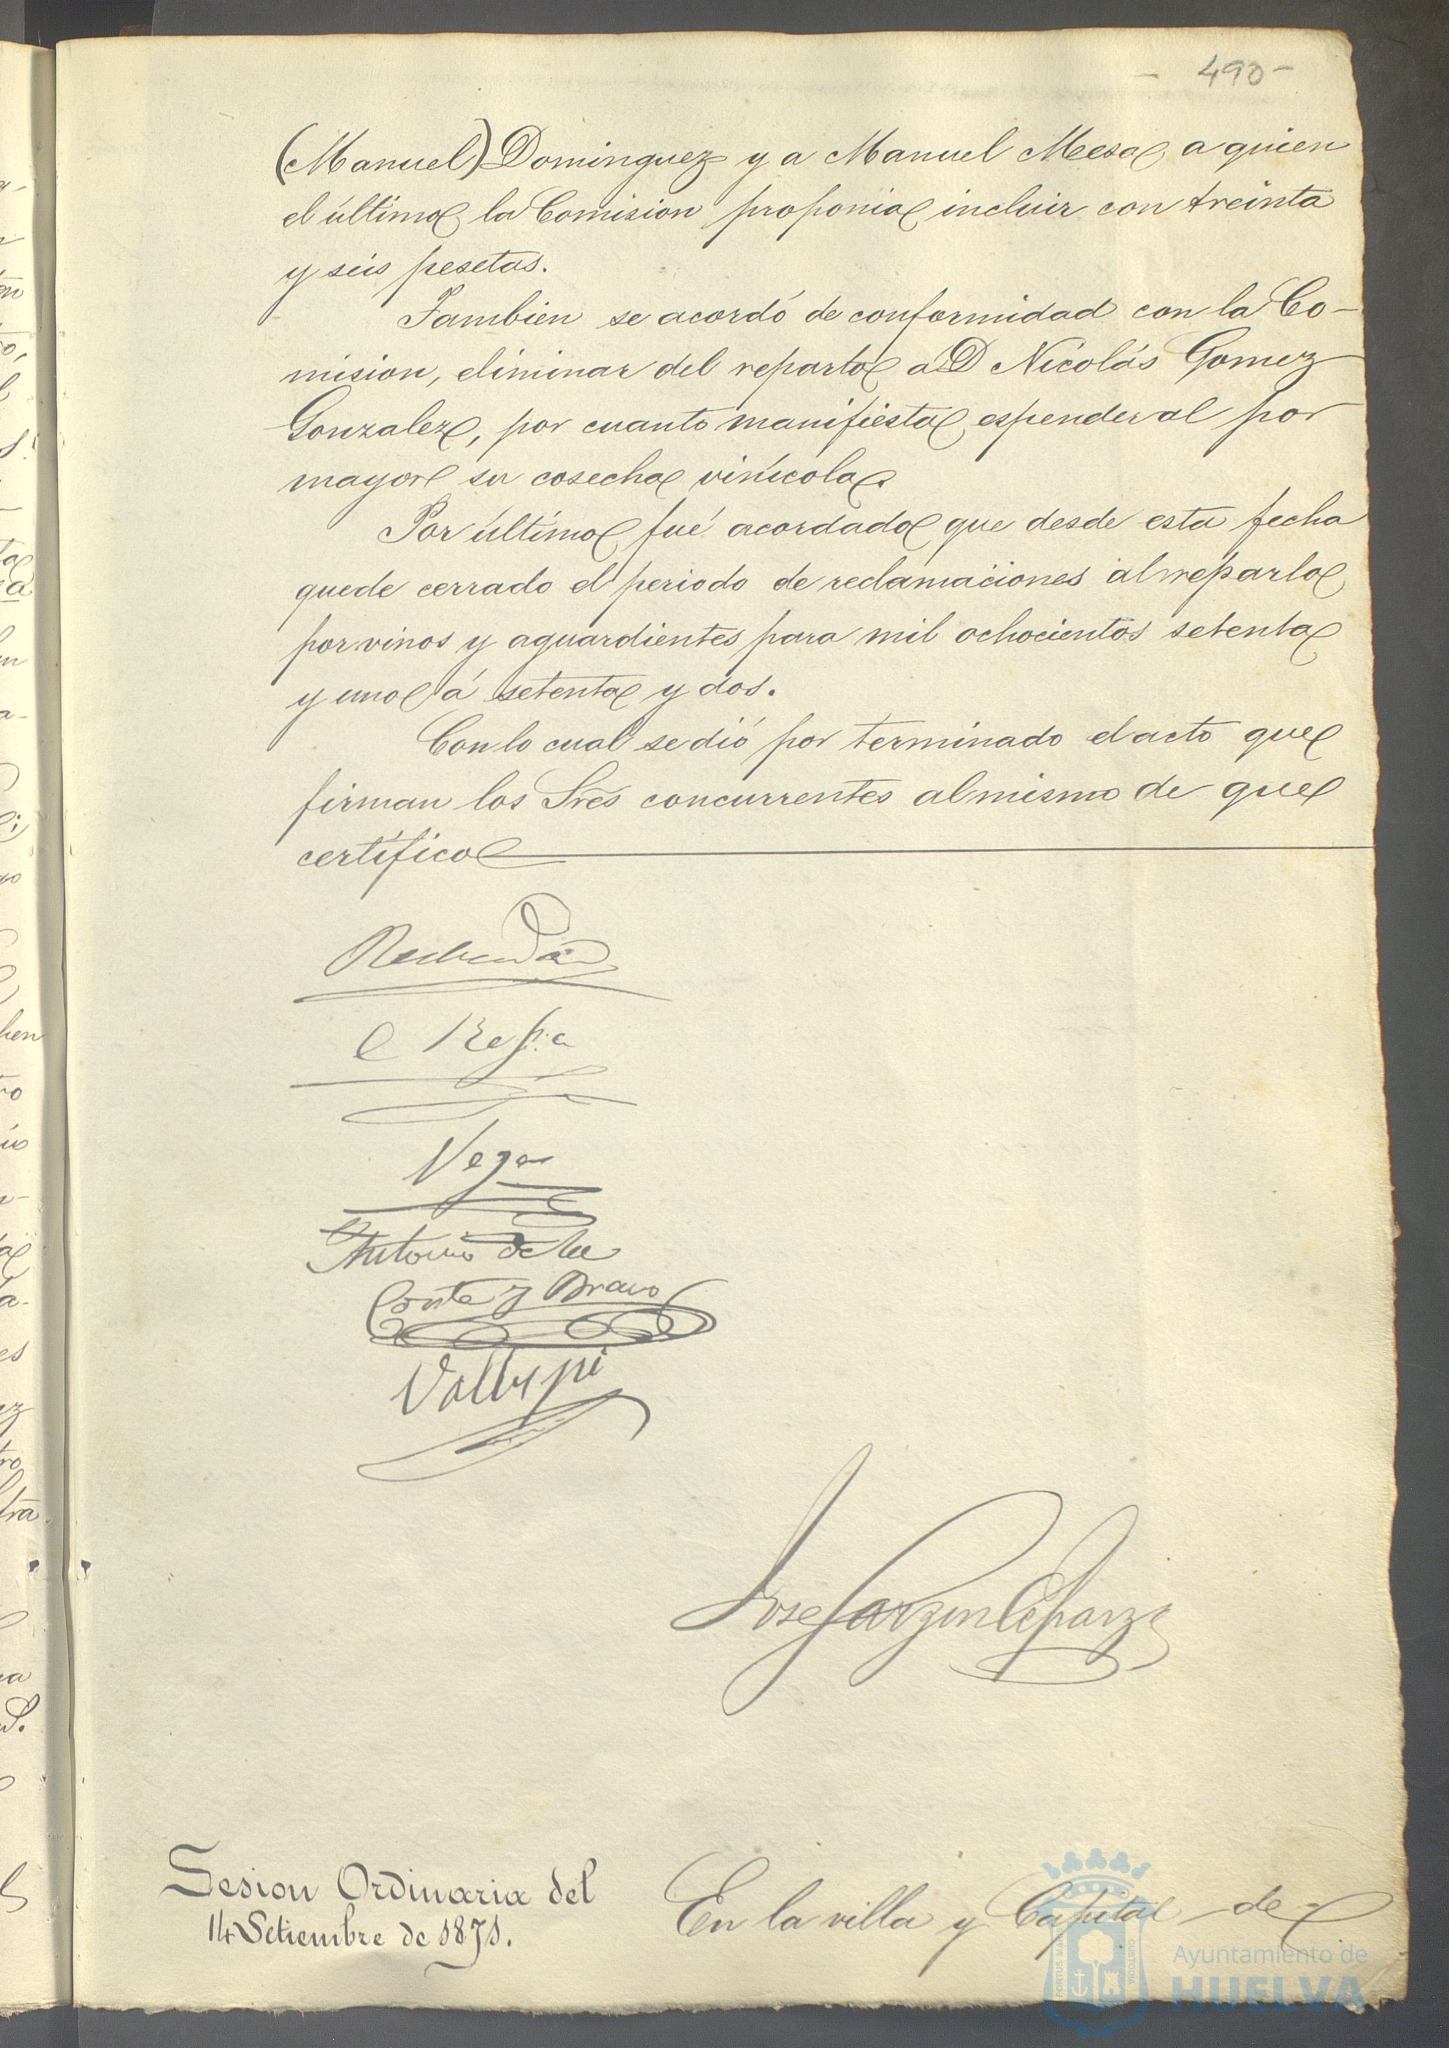 - 490 -
(Manuel) Dominguez y a Manuel Mesa, a quien
el último la Comision proponia incluir con treinta
y seis pesetas.
Tambien se acordó de conformidad con la Co-
mision, eliminar del reparto á D Nicolás Gomez
Gonzalez, por cuanto manifiesta espender al por
mayor su cosecha vinícola.
Por último fué acordado que desde esta fecha
quede cerrado el periodo de reclamaciones al reparto
por vinos y aguardientes para mil ochocientos setenta
y uno á setenta y dos.
Con lo cual se dió por terminado el acto que
firman los Sres concurrentes al mismo de que
certífico
Vega
Antonio de la
Corte y Bravo
Jose Garzon
Sesion Ordinaria del
14 Setiembre de 1871.
En la villa y Capital de
Ayuntamiento de
HUELVA